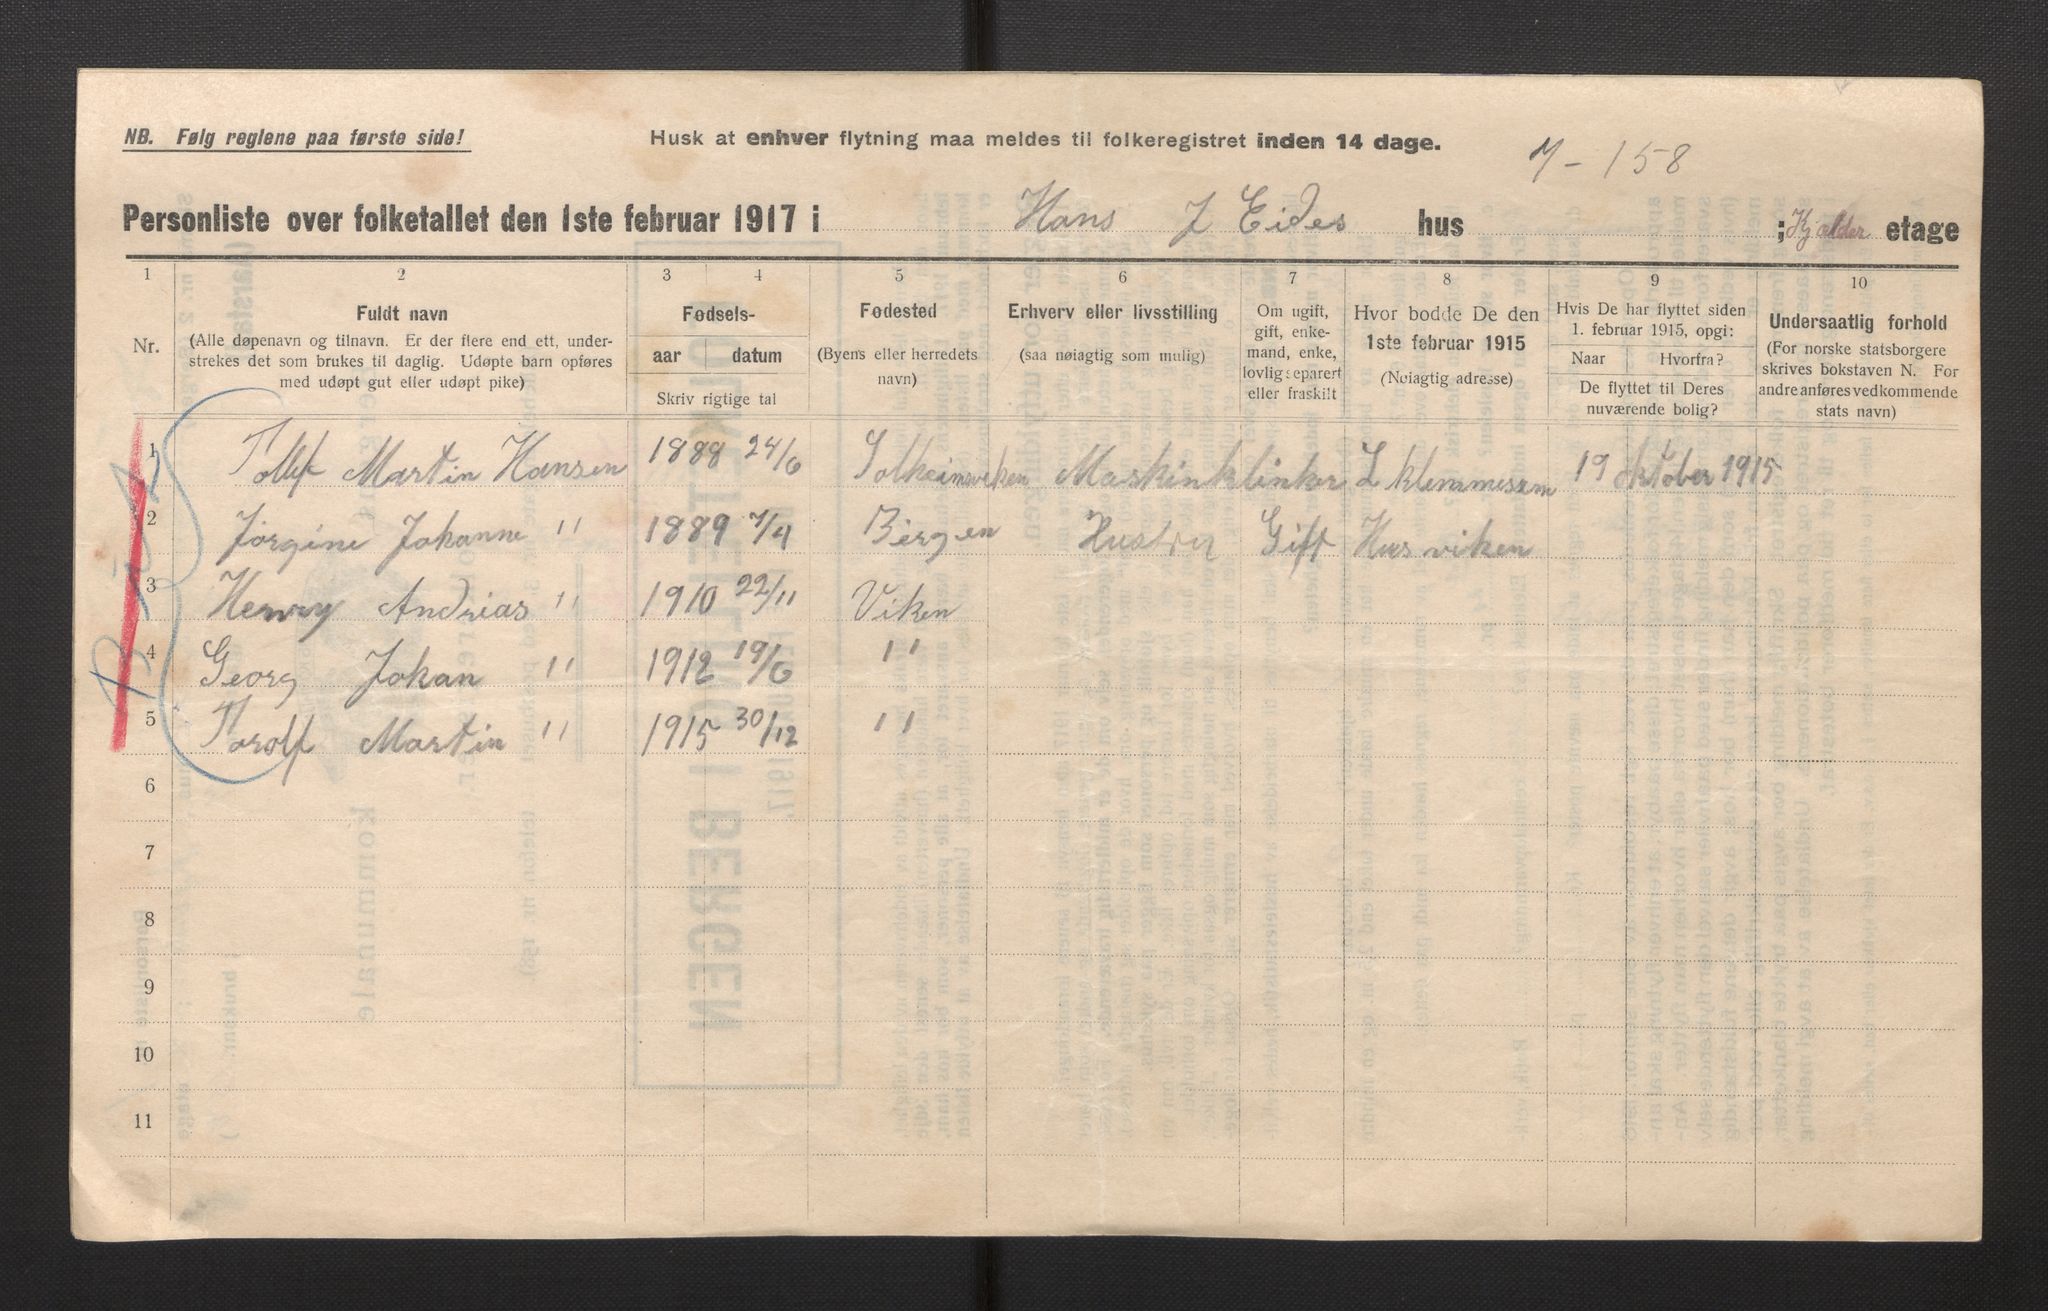 NB. Følg reglene paa første side!
Husk at enhver flytning maa meldes til folkeregistret inden 14 dage.
7-158
Personliste over folketallet den 1ste februar 1917 i Hans J Eides hus ; Kjælder etage
1 2 3 4 5 6 7 8 9 10
Nr.
Fuldt navn
(Alle døpenavn og tilnavn. Er der flere end ett, under-
strekes det som brukes til daglig. Udøpte barn opføres
med udøpt gut eller udøpt pike)
Fødsels-
aar datum
Skriv rigtige tal
Fødested
(Byens eller herredets
navn)
Erhverv eller livsstilling
(saa nøiagtig som mulig)
Om ugift,
gift, enke-
mand, enke,
lovlig separert
eller fraskilt
Hvor bodde De den
1ste februar 1915
(Nøiagtig adresse)
Hvis De har flyttet siden
1. februar 1915, opgi:
Naar Hvorfra?
De flyttet til Deres
nuværende bolig?
Undersaatlig forhold
(For norske statsborgere
skrives bokstaven N. For
andre anføres vedkommende
stats navn)
1 Tollef Martin Hansen 1888 24/6 Solheimsviken Maskinklinker L klemmesem 19 oktober 1915
2 Jørgine Johanne " 1889 7/4 Bergen Hustru Gift Hus viken
3 Henry Andrias " 1910 22/11 Viken
4 Georg Johan " 1912 19/6 "
5 Torolf Martin " 1915 30/12 "
6
7
8
9
10
11